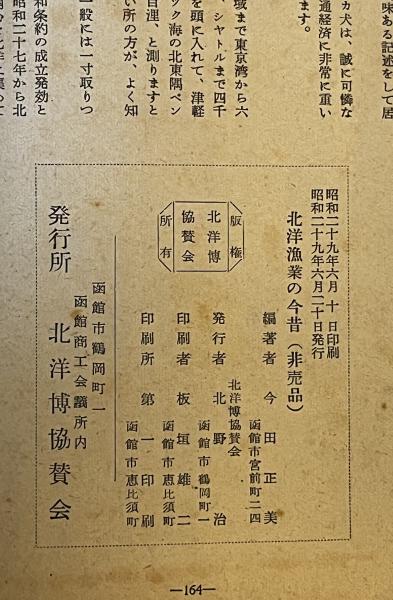 味ある記述をして居
カ犬は、誠に可憐な
通経済に非常に重い
ます。
域まで東京湾から六
、シヤトルまで四千
を頭に入れて、津軽
ック海の北東隅ペン
自浬、と測りますと
い所の方が、よく知
一般には一寸取りつ
和条約の成立発効と
昭和二十七年から北
昭和二十九年六月十日印刷
昭和二十九年六月二十日発行
北洋漁業の今昔(非売品)
版権
北洋博
協賛会
所有
函館市宮前町二四
編著者 今田正美
北洋博協賛会
発行者 北野治
函館市鶴岡町一
印刷者 板垣雄二
函館市恵比須町
印刷所 第一印刷
函館市恵比須町
函館市鶴岡町一
函館商工会議所内
発行所 北洋博協賛会
—164—